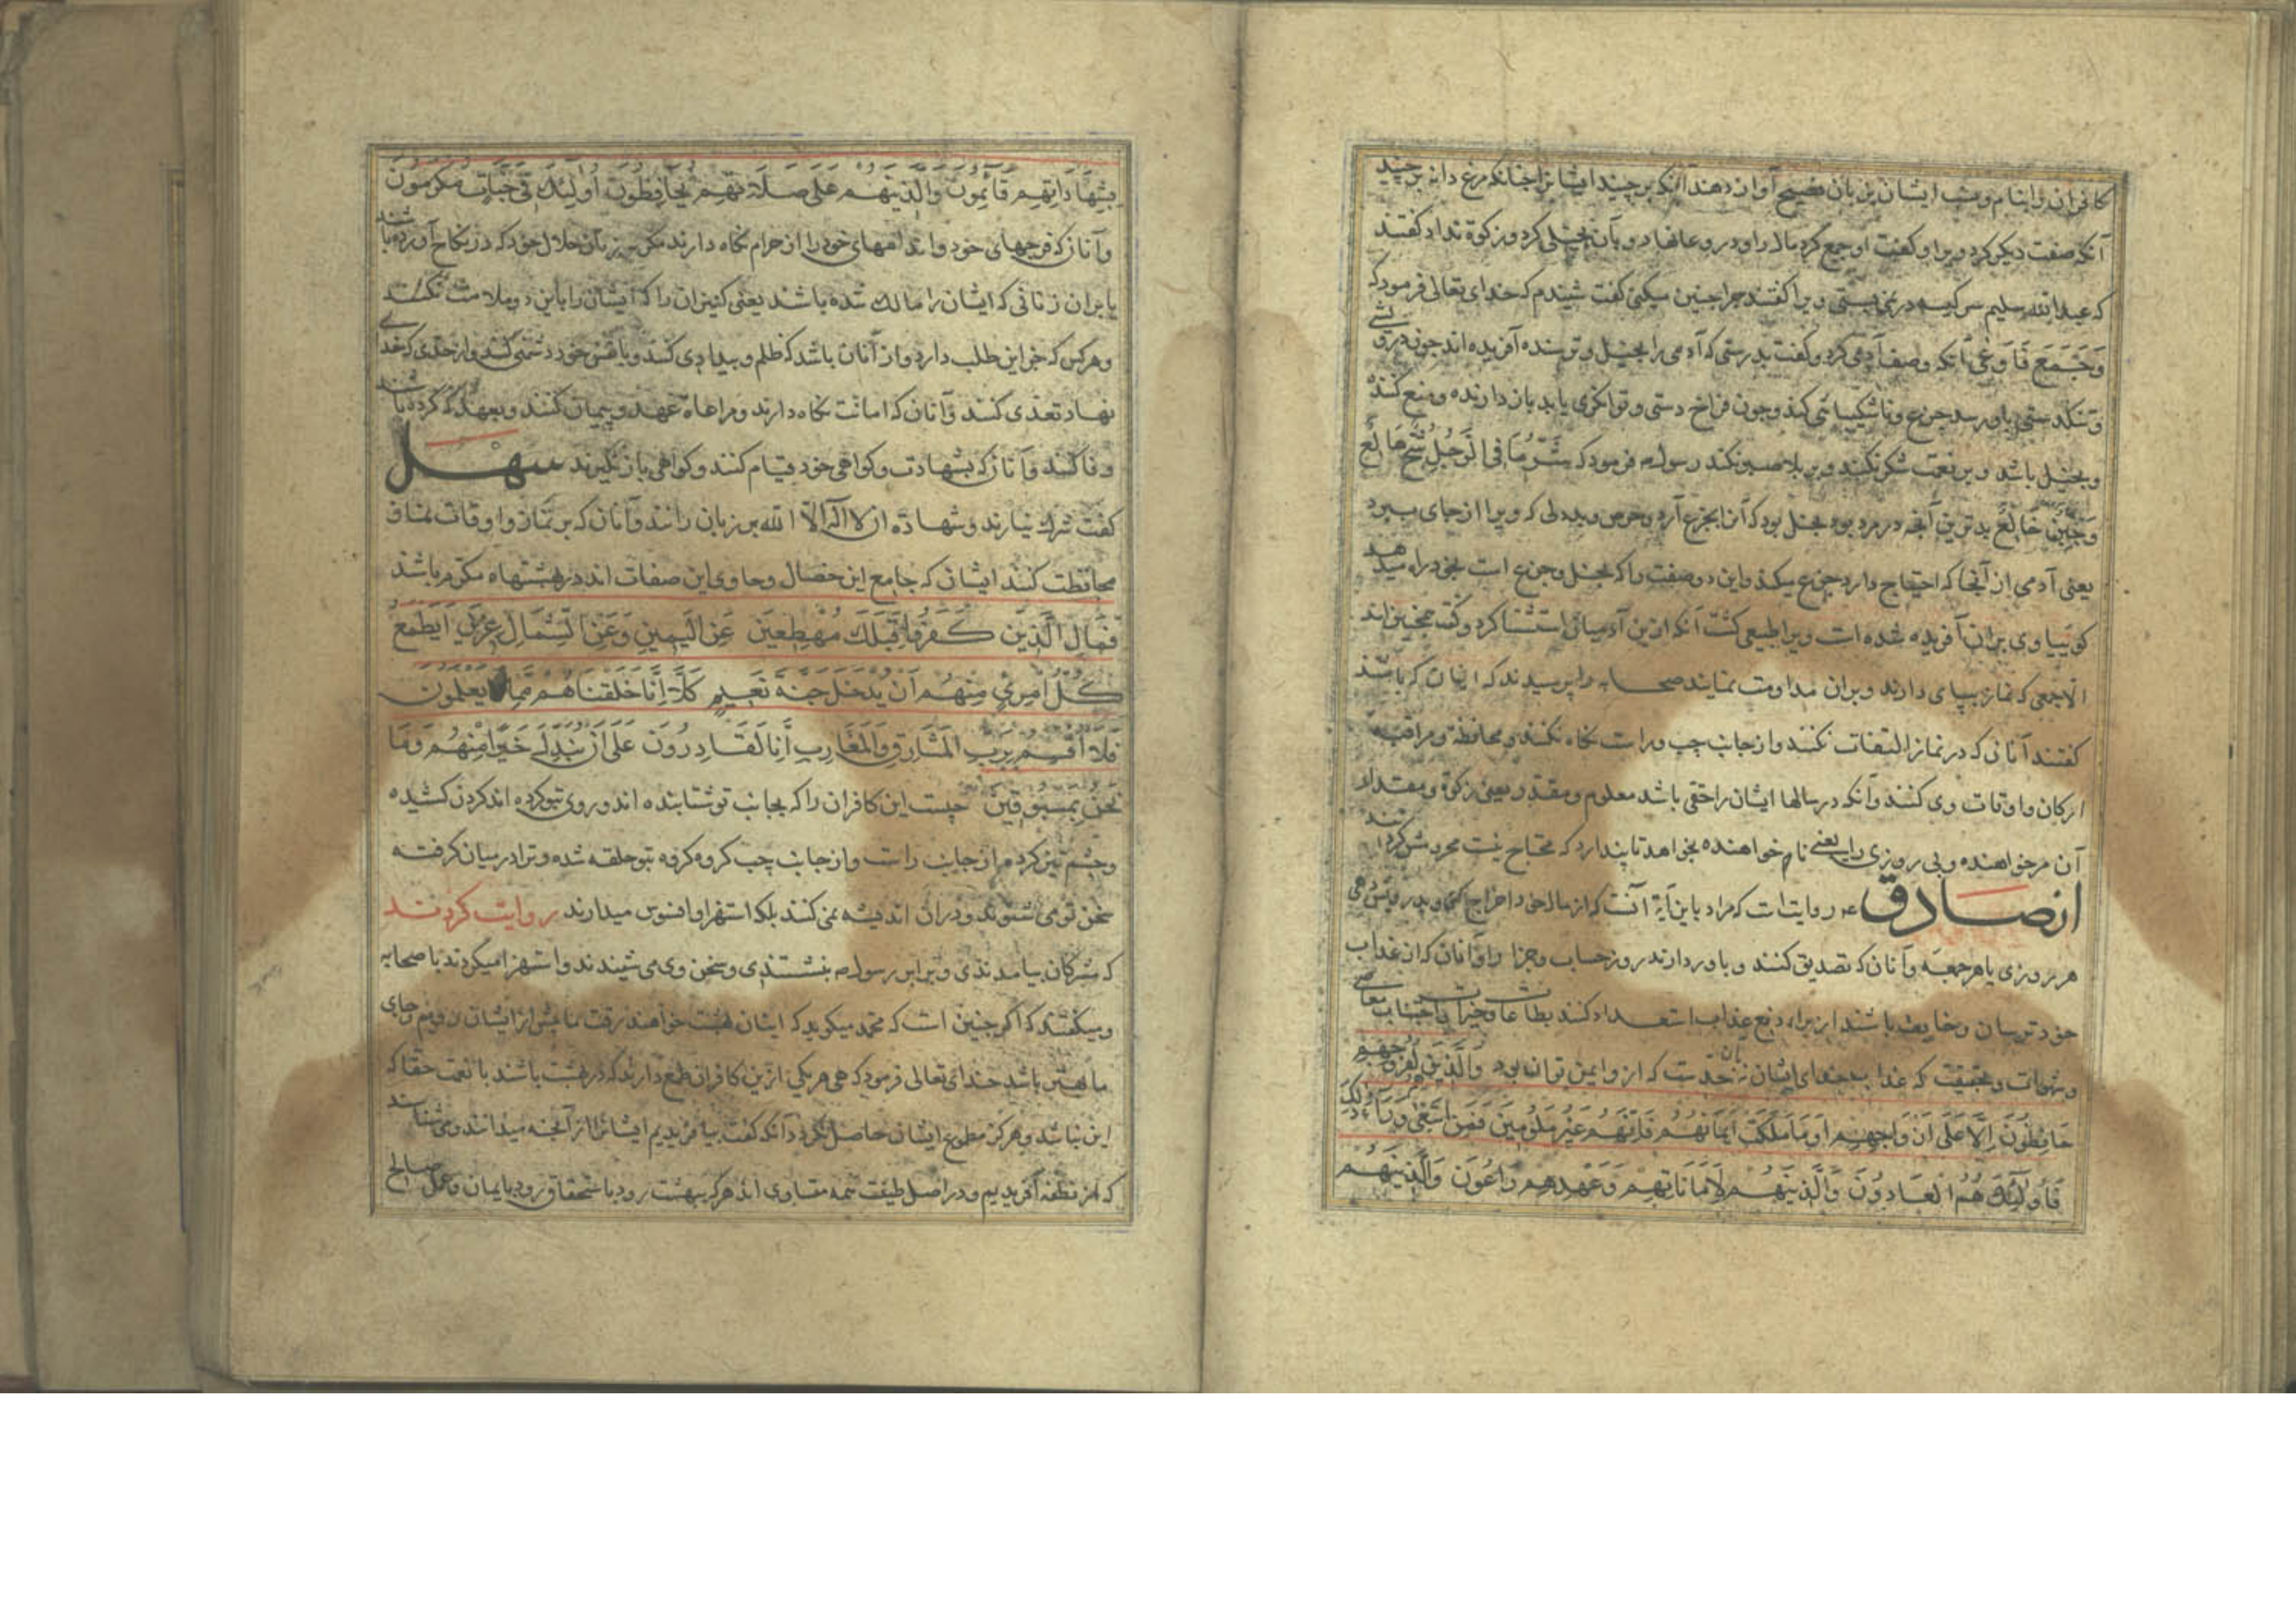 کافران را بنام و نسب ایشان بزبان فصیح آواز دهد آنکه برچیند ایشانرا چنانکه مرغ دانه برچیند
آنکه صفت دیگر کرد ویرا و گفت او جمع کرد مال را و در وعا نهاد و بآن بخیلی کرد و زکوة نداد گفتند
که عبدالله سلیم سر کیسه در نمی بستی ویرا گفتند چرا چنین میکنی گفت شنیدم که خدای تعالی فرمود که
وَجَمَعَ فَاَوْعٰی آنکه وصف آدمی کرد و گفت بدرستی که آدمی را بخیل و ترسنده آفریده اند چون درویشی
و تنگدستی باو رسد جزع و ناشکیبائی کند و چون فراخ دستی و توانکری یابد بازدارنده و منع کننده
و بخیل باشد و بر نعمت شکر نکند و بر بلا صبر نکند رسول فرمود که شَرُّ مَا فِی الرَّجُلِ شُحٌّ هَالِعٌ
وَجُبْنٌ خَالِعٌ بدترین آنچه در مرد بود بخل بود که آنرا بجزع آرد و حرص و بددلی که ویرا از جای ببرد
یعنی آدمی از آنجا که احتیاج دارد جزع میکند و این دو صفت را که بخل و جزع است بخود راه میدهد
گوییا وی بران آفریده شده است ویرا طبیعی گشت آنکه ازین آدمیان استثنا کرد و گفت همچنین اند
الا جمعی که نماز بپای دارند و بران مداومت نمایند صحابه را پرسیدند که اینان که باشند
گفتند آنانی که در نماز التفات نکنند و از جانب چپ و راست نگاه نکنند و محافظة و مراقبة
ارکان و اوقات وی کنند و آنکه در مالها ایشان را حقی باشد معلوم و مقدر یعنی زکوة و مقدار
آن مر خواهنده و بی روزی را یعنی نام خواهنده بخواهد تا پندارد که محتاج نیست محرومش کردند
از صادق ع روایت است که مراد باین آیة آنست که از مال خود اخراج کنی و بدرویش دهی
هر روزی یا هر جمعه و آنان که تصدیق کنند و باور دارند روز حساب و جزا را و آنان که از عذاب
خود ترسان و خایف باشند از برای دفع عذاب استعداد کنند بطاعات و خیرات باجتناب معاصی
و شهوات و بحقیقت که عذاب خدای ایشان نه آن حدست که ازو ایمن توان بود وَالَّذِینَ هُمْ لِفُرُوجِهِمْ
حَافِظُونَ اِلَّا عَلٰی اَزْوَاجِهِمْ اَوْ مَا مَلَکَتْ اَیْمَانُهُمْ فَاِنَّهُمْ غَیْرُ مَلُومِینَ فَمَنِ ابْتَغٰی وَرَاءَ ذٰلِکَ
فَاُولٰئِکَ هُمُ الْعَادُونَ وَالَّذِینَ هُمْ لِاَمَانَاتِهِمْ وَعَهْدِهِمْ رَاعُونَ وَالَّذِینَ هُمْ
بِشَهَادَاتِهِمْ قَائِمُونَ وَالَّذِینَ هُمْ عَلٰی صَلَاتِهِمْ یُحَافِظُونَ اُولٰئِکَ فِی جَنَّاتٍ مُکْرَمُونَ
و آنان که فرجهای خود و اندامهای خود را از حرام نگاه دارند مگر بر زنان حلال خود که در نکاح آورده باشند
یا بران زنانی که ایشان را مالک شده باشند یعنی کنیزان را که ایشان را باین دو ملامت نکنند
و هرکس که جز این طلب دارد او از آنان باشد که ظلم و بیدادی کنند و با نفس خود دشمنی کنند و از حدی که خدای
نهاد تعدی کنند و آنان که امانت نگاه دارند و مراعاة عهد و پیمان کنند و بعهد که کرده باشند
وفا کنند و آنان که بشهادت و گواهی خود قیام کنند و گواهی باز نگیرند سهل
گفت شرک نیارند و شهادة ان لا اله الا الله بر زبان رانند و آنان که بر نماز و اوقات نماز
محافظت کنند ایشان که جامع این خصال و حاوی این صفات اند در بهشتها مکرم باشند
فَمَالِ الَّذِینَ کَفَرُوا قِبَلَکَ مُهْطِعِینَ عَنِ الْیَمِینِ وَعَنِ الشِّمَالِ عِزِینَ اَیَطْمَعُ
کُلُّ امْرِیءٍ مِنْهُمْ اَنْ یُدْخَلَ جَنَّةَ نَعِیمٍ کَلَّا اِنَّا خَلَقْنَاهُمْ مِمَّا یَعْلَمُونَ
فَلَا اُقْسِمُ بِرَبِّ الْمَشَارِقِ وَالْمَغَارِبِ اِنَّا لَقَادِرُونَ عَلٰی اَنْ نُبَدِّلَ خَیْرًا مِنْهُمْ وَمَا
نَحْنُ بِمَسْبُوقِینَ چیست این کافران را که بجانب تو شتابنده اند و روی بتو کرده اند گردن کشیده
و چشم تیز کرده از جانب راست و از جانب چپ گروه گروه بتو حلقه شده و ترا در میان گرفته
سخن تو می شنوند و دران اندیشه نمی کنند بلکه استهزا و افسوس میدارند روایت کردند
که مشرکان بیامدندی و برابر رسول بنشستندی و سخن وی می شنیدند و استهزا میکردند با صحابه
و میگفتند که اگر چنین است که محمد میگوید که ایشان بهشت خواهند رفت ما پیش از ایشان رویم و جای
ما بهتر باشد خدای تعالی فرمود که هی هر یکی ازین کافران طمع دارند که در بهشت باشند با نعمت حقا که
این نباشد و هرگز مطموع ایشان حاصل نگردد آنکه گفت بیافریدیم ایشانرا از آنچه میدانند و می شناسند
که از نطفه آفریدیم و در اصل طینت همه متساوی اند هر که ببهشت رود باستحقاق رود بایمان و عمل صالح